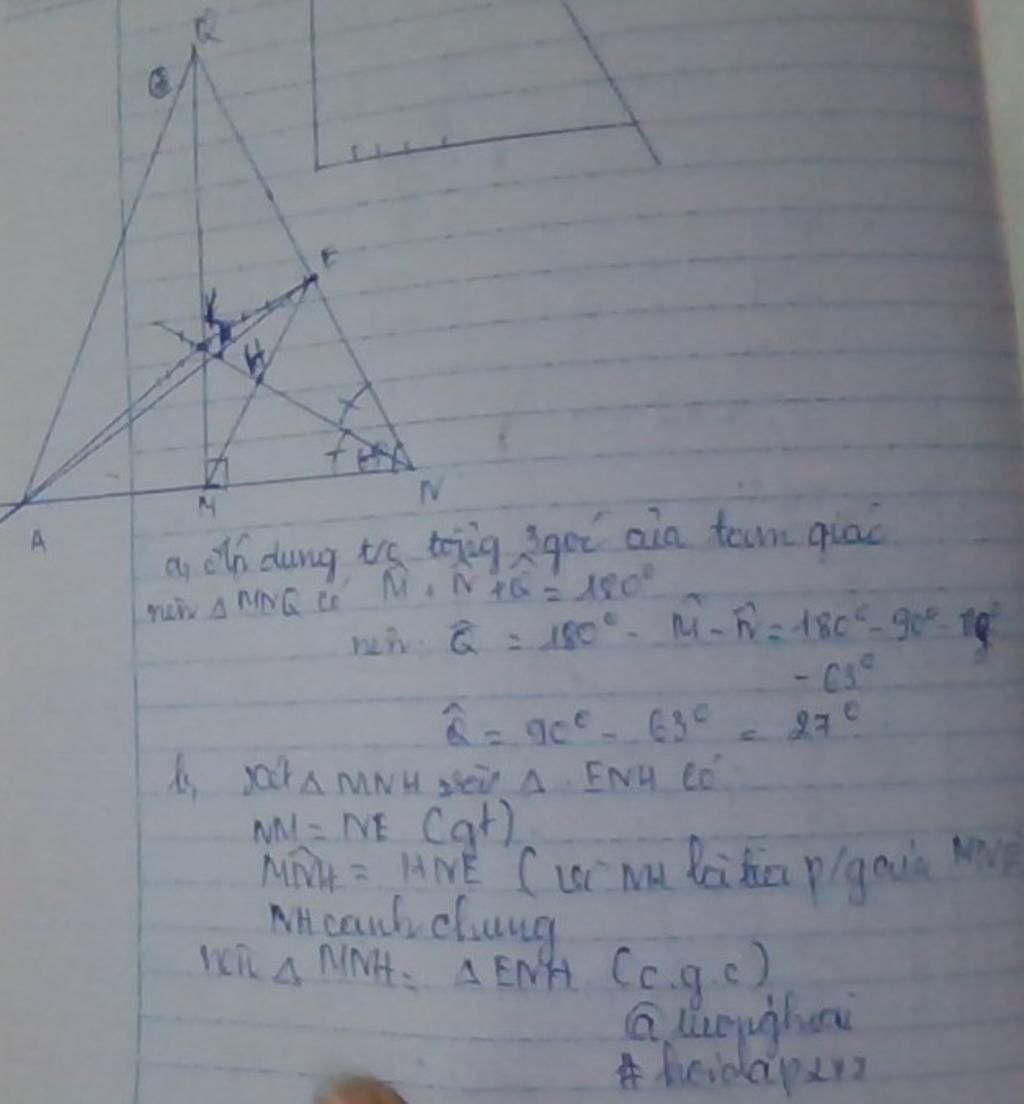 Q
E
K
H
M
N
A
a, áp dung t/c tổng 3 góc của tam giác
nên △ MNQ có M̂ + N̂ + Q̂ = 180°
nên Q̂ = 180° - M̂ - N̂ = 180° - 90°
- 63°
Q̂ = 90° - 63° = 27°
b, xét △ MNH và △ ENH có
NM = NE (gt)
MNH = HNE (vì NH là tia p/g của MNE
NH cạnh chung
nên △ MNH = △ ENH (c.g.c)
@
# hoidap247